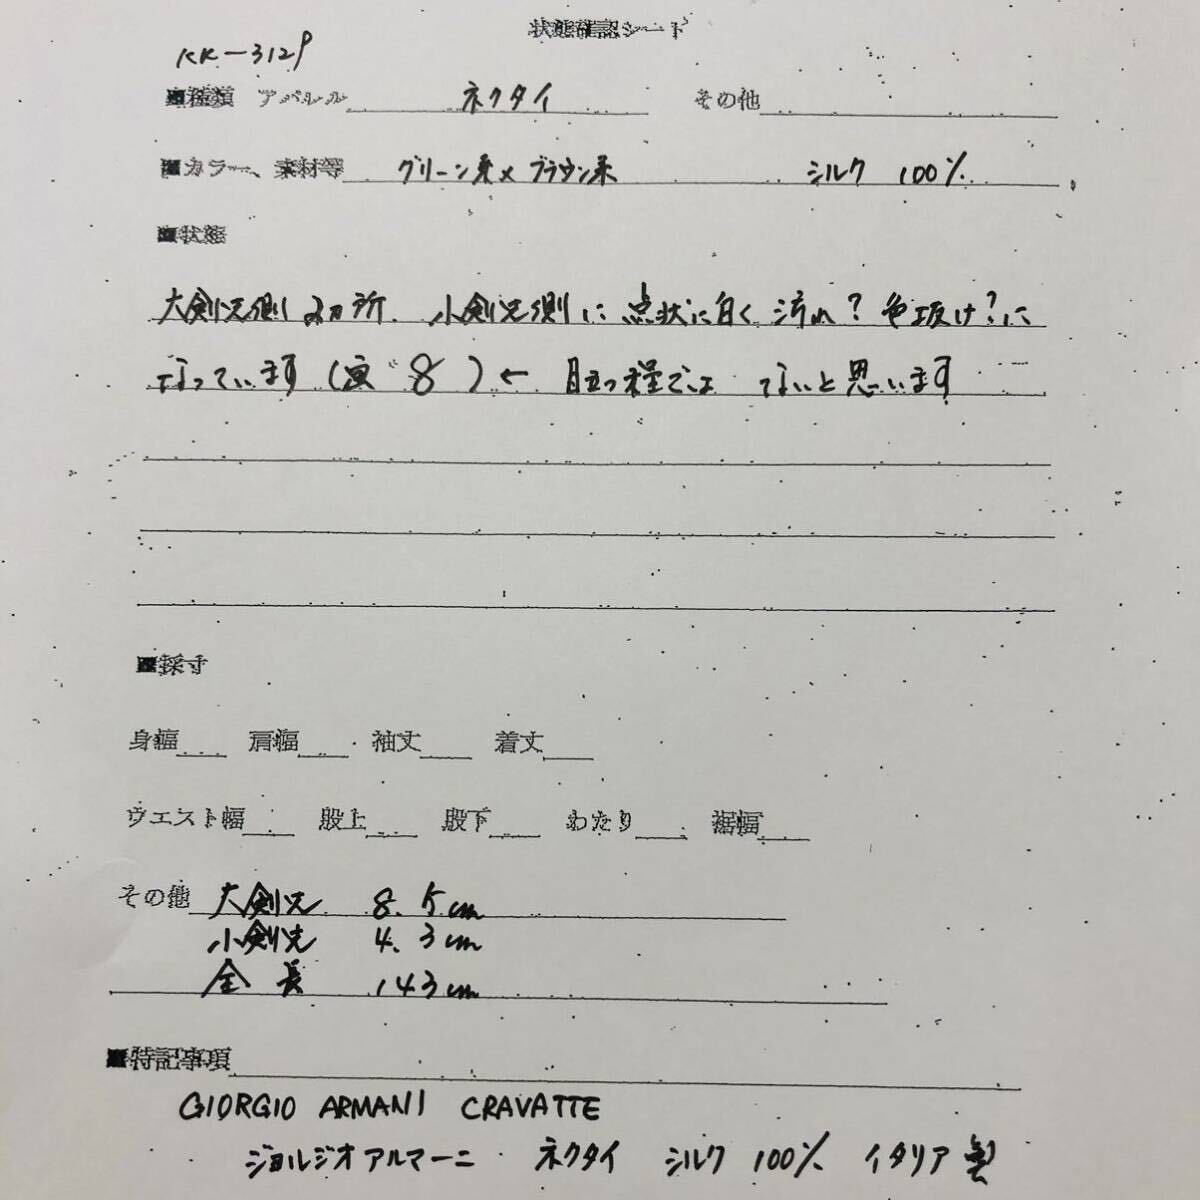 状態確認シート
KK-3129
■種類 アパレル ネクタイ その他
■カラー、素材等 グリーン系×ブラウン系 シルク 100%
■状態
大剣先側2ヵ所、小剣先側に点状に白く汚れ?色抜け?に
なっています(写 8)← 目立つ程では ないと思います
■採寸
身幅 肩幅 袖丈 着丈
ウエスト幅 股上 股下 わたり 裾幅
その他 大剣先 8.5cm
小剣先 4.3cm
全長 143cm
■特記事項
GIORGIO ARMANI CRAVATTE
ジョルジオアルマーニ ネクタイ シルク 100% イタリア製